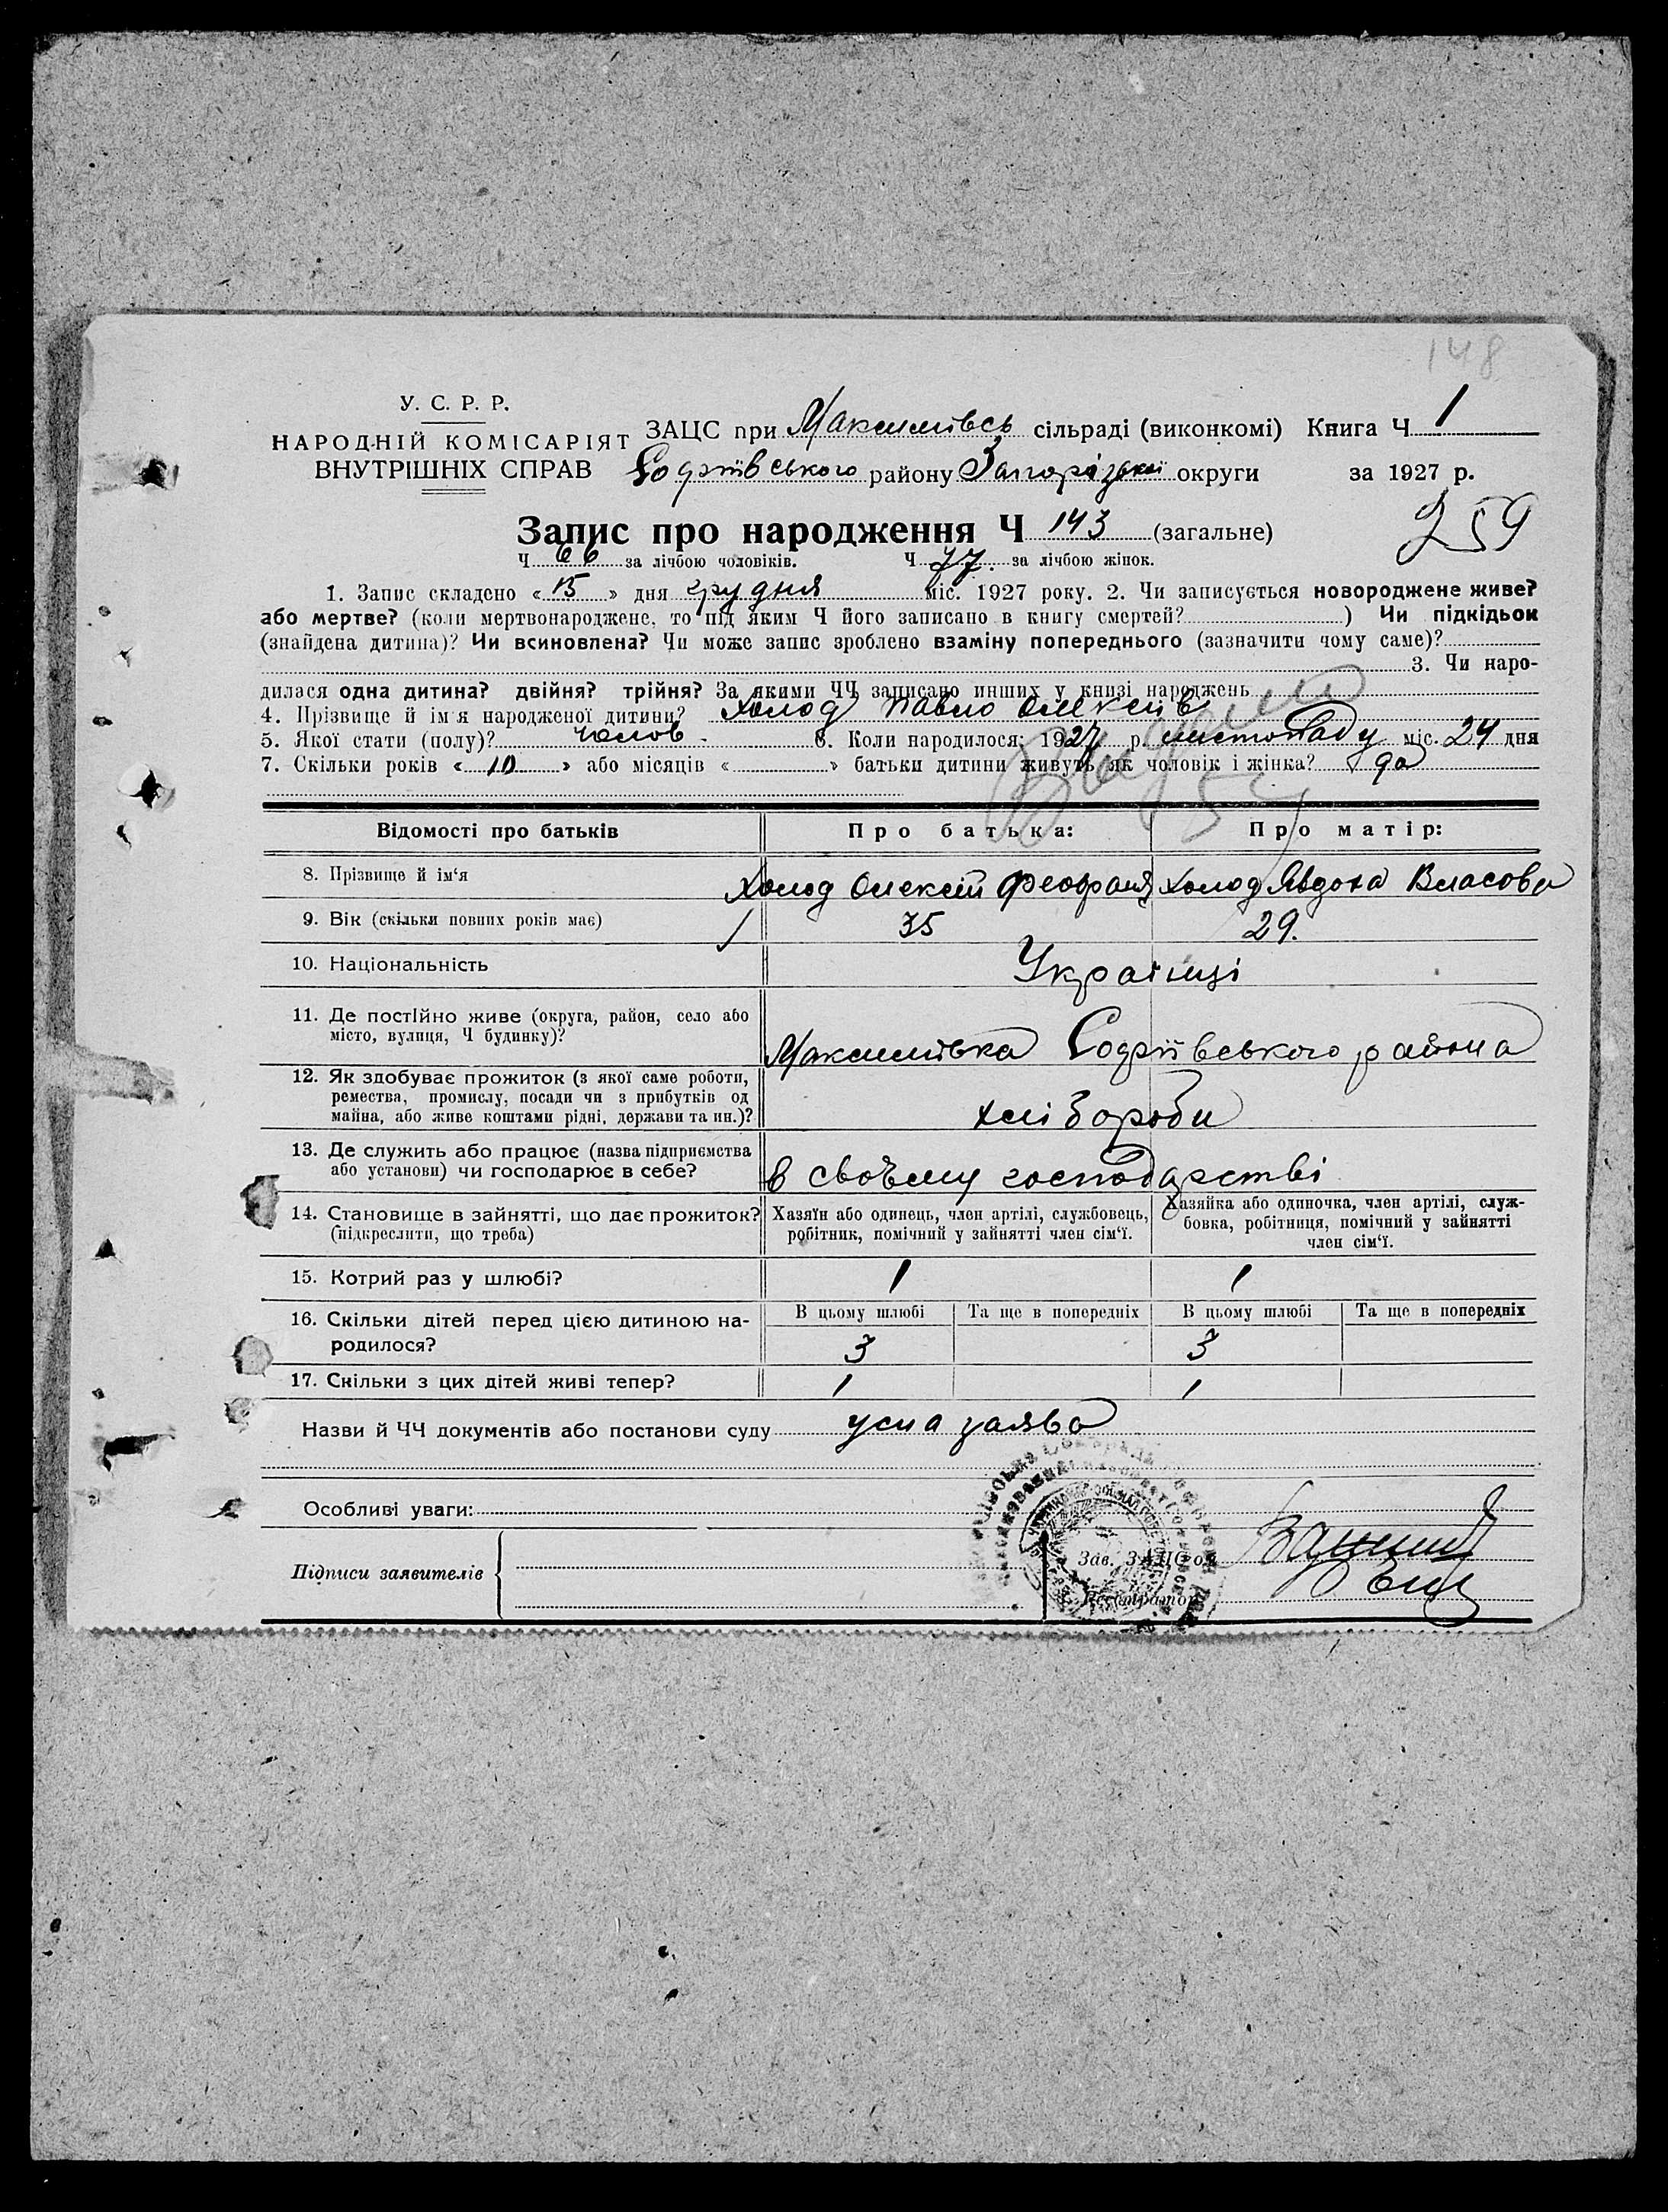 148
У. С. Р. Р.
НАРОДНІЙ КОМІСАРІЯТ
ВНУТРІШНІХ СПРАВ
ЗАЦС при Максимівсь сільраді (виконкомі) Книга Ч 1
Софіївського району Запорізької округи за 1927 р.
Запис про народження Ч 143 (загальне)
259
Ч 66 за лічбою чоловіків. Ч 77. за лічбою жінок.
1. Запис складено « 15 » дня грудня міс. 1927 року. 2. Чи записується новороджене живе?
або мертве? (коли мертвонароджене, то під яким Ч його записано в книгу смертей? ) Чи підкідьок
(знайдена дитина)? Чи всиновлена? Чи може запис зроблено взаміну попереднього (зазначити чому саме)?
3. Чи наро-
дилася одна дитина? двійня? трійня? За якими ЧЧ записано инших у книзі народжень
4. Прізвище й ім'я народженої дитини? Холод Павло Олексіїв
5. Якої стати (полу)? чолов. 6. Коли народилося: 1927 р. листопаду міс. 24 дня
7. Скільки років « 10 » або місяців « » батьки дитини живуть як чоловік і жінка? да
Відомості про батьків Про батька: Про матір:
8. Прізвище й ім'я Холод Олексій Феофан Холод Явдоха Власова
9. Вік (скільки повних років має) 35 29.
10. Національність Українці
11. Де постійно живе (округа, район, село або
місто, вулиця, Ч будинку)? Максимівка Софіївського района
12. Як здобуває прожиток (з якої саме роботи,
ремества, промислу, посади чи з прибутків од
майна, або живе коштами рідні, держави та ин.)? хлібороби
13. Де служить або працює (назва підприємства
або установи) чи господарює в себе? в своъму господарстві
14. Становище в зайнятті, що дає прожиток?
(підкреслити, що треба)
Хазяїн або одинець, член артілі, службовець,
робітник, помічний у зайнятті член сім'ї.
Хазяйка або одиночка, член артілі, служ-
бовка, робітниця, помічний у зайнятті
член сім'ї.
15. Котрий раз у шлюбі? 1 1
16. Скільки дітей перед цією дитиною на-
родилося?
В цьому шлюбі Та ще в попередніх В цьому шлюбі Та ще в попередніх
3 3
17. Скільки з цих дітей живі тепер? 1 1
Назви й ЧЧ документів або постанови суду усна заява
Особливі уваги:
Підписи заявителів
Зав. ЗАЦС'ом
Реєстратор